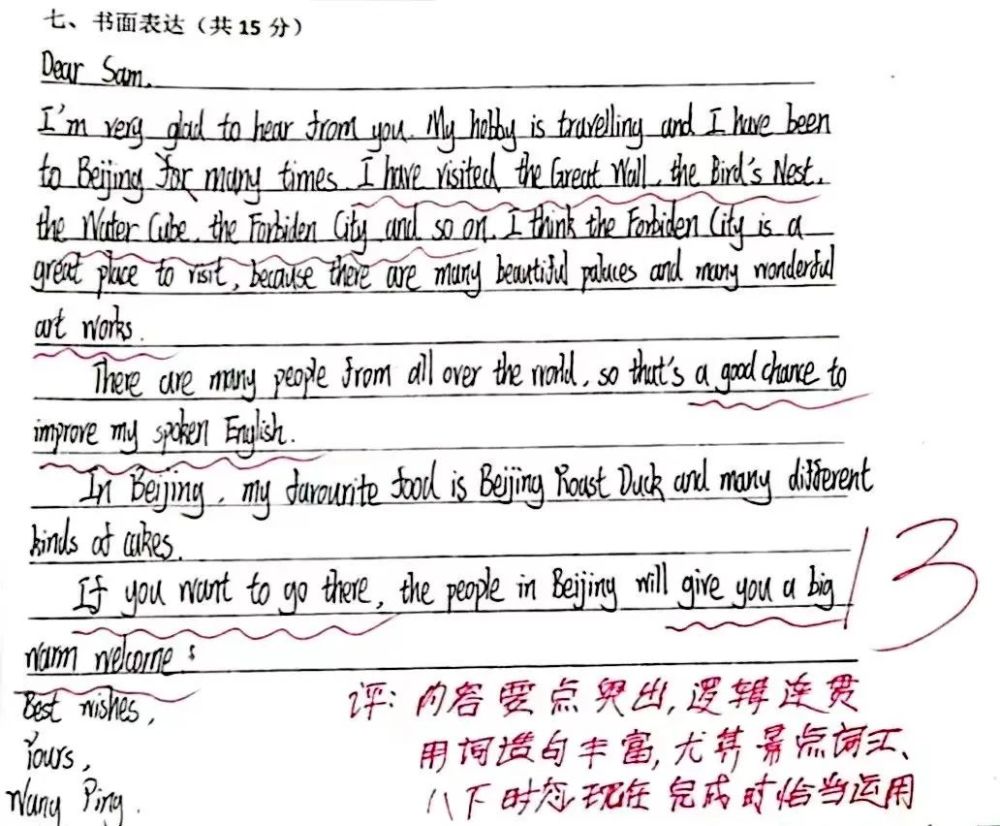 七、书面表达（共 15 分）
Dear Sam,
I'm very glad to hear from you. My hobby is travelling and I have been
to Beijing for many times. I have visited the Great Wall, the Bird's Nest,
the Water Cube, the Forbiden City and so on. I think the Forbiden City is a
great place to visit, because there are many beautiful palaces and many wonderful
art works.
There are many people from all over the world, so that's a good chance to
improve my spoken English.
In Beijing, my favourite food is Beijing Roast Duck and many different
kinds of cakes.
If you want to go there, the people in Beijing will give you a big
warm welcome!
13
Best wishes,
Yours,
Wang Ping.
评：内容要点突出，逻辑连贯
用词造句丰富，尤其景点词汇、
八下时态现在完成时恰当运用